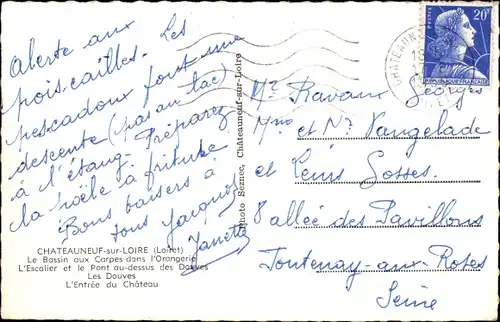 Alerte aux
poiscailles. Les
pescadoux font une
descente (pas au tac)
à l'étang. Préparez
la poêle à friture
Bons baisers à
tous Jacques
Janette
CHATEAUNEUF-sur-LOIRE (Loiret)
Le Bassin aux Carpes dans l'Orangerie
L'Escalier et le Pont au-dessus des Douves
Les Douves
L'Entrée du Château
Photo Seznec, Châteauneuf-sur-Loire
CHATEAUNEUF
POSTES
20F
REPUBLIQUE FRANÇAISE
Mr Ravaux Georges
Mme et Mr Vangelade
et Leurs Gosses.
8 allée des Pavillons
Fontenay-aux-Roses
Seine